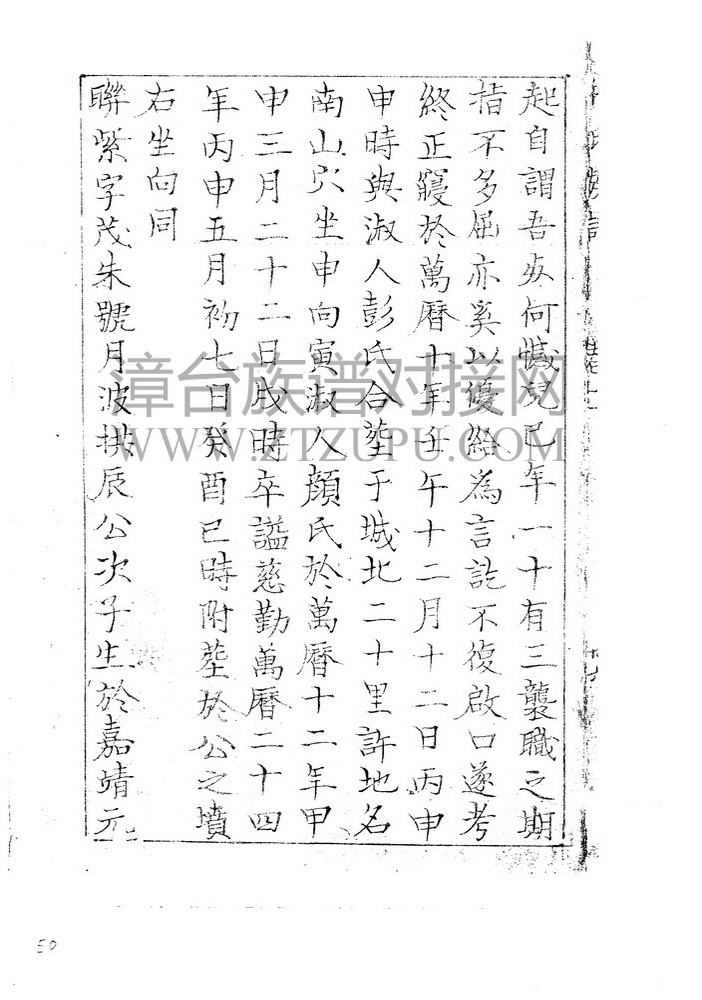 起自謂吾亥何憾兒已年一十有三襲職之期
指不多屈亦奚以優給為言訖不復啟口遂考
終正寢於萬曆十年壬午十二月十二日丙申
申時與淑人彭氏合塟于城北二十里許地名
南山穴坐申向寅淑人顔氏於萬曆十二年甲
申三月二十二日戌時卒謚慈勤萬曆二十四
年丙申五月初七日癸酉巳時附塟於公之墳
右坐向同
聯紫字茂朱號月波拱辰公次子生於嘉靖元
漳台族谱对接网
WWW.ZTZUPU.COM
50